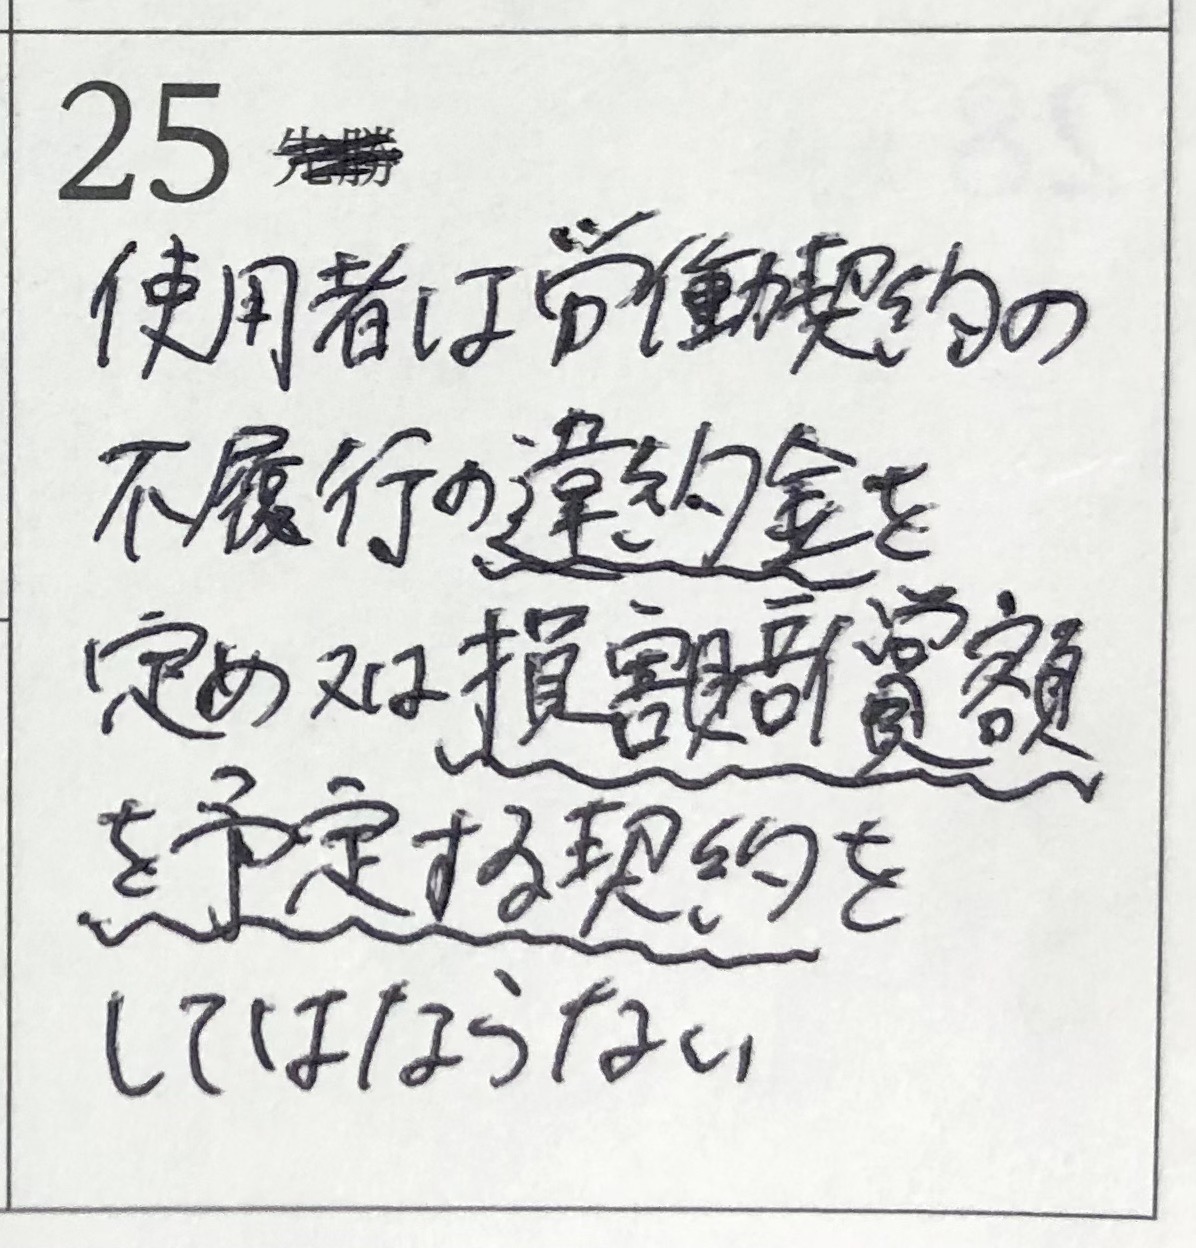 25 先勝
使用者は労働契約の
不履行の違約金を
定め又は損害賠償額
を予定する契約を
してはならない